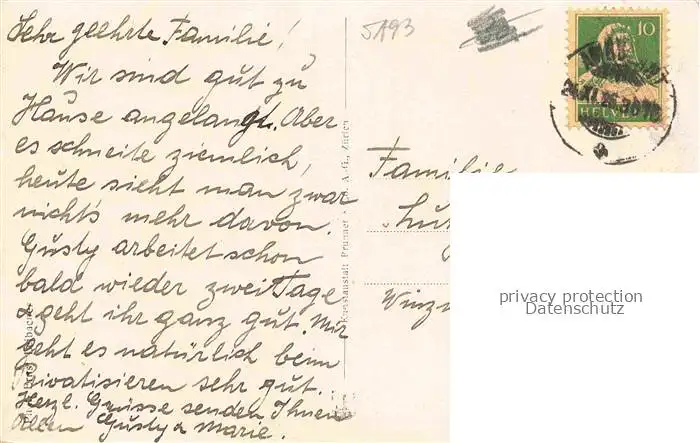 Sehr geehrte Familie!
Wir sind gut zu
Hause angelangt. Aber
es schneite ziemlich,
heute sieht man zwar
nichts mehr davon.
Gusty arbeitet schon
bald wieder zwei Tage
& geht ihr ganz gut. Mir
geht es natürlich beim
privatisieren sehr gut.
Herzl. Grüsse senden Ihnen
Allen Gusty & Marie.
5193
10
HELVE
Familie
privacy protection
Datenschutz
Kunstanstalt Brunner & Co. A.G., Zürich